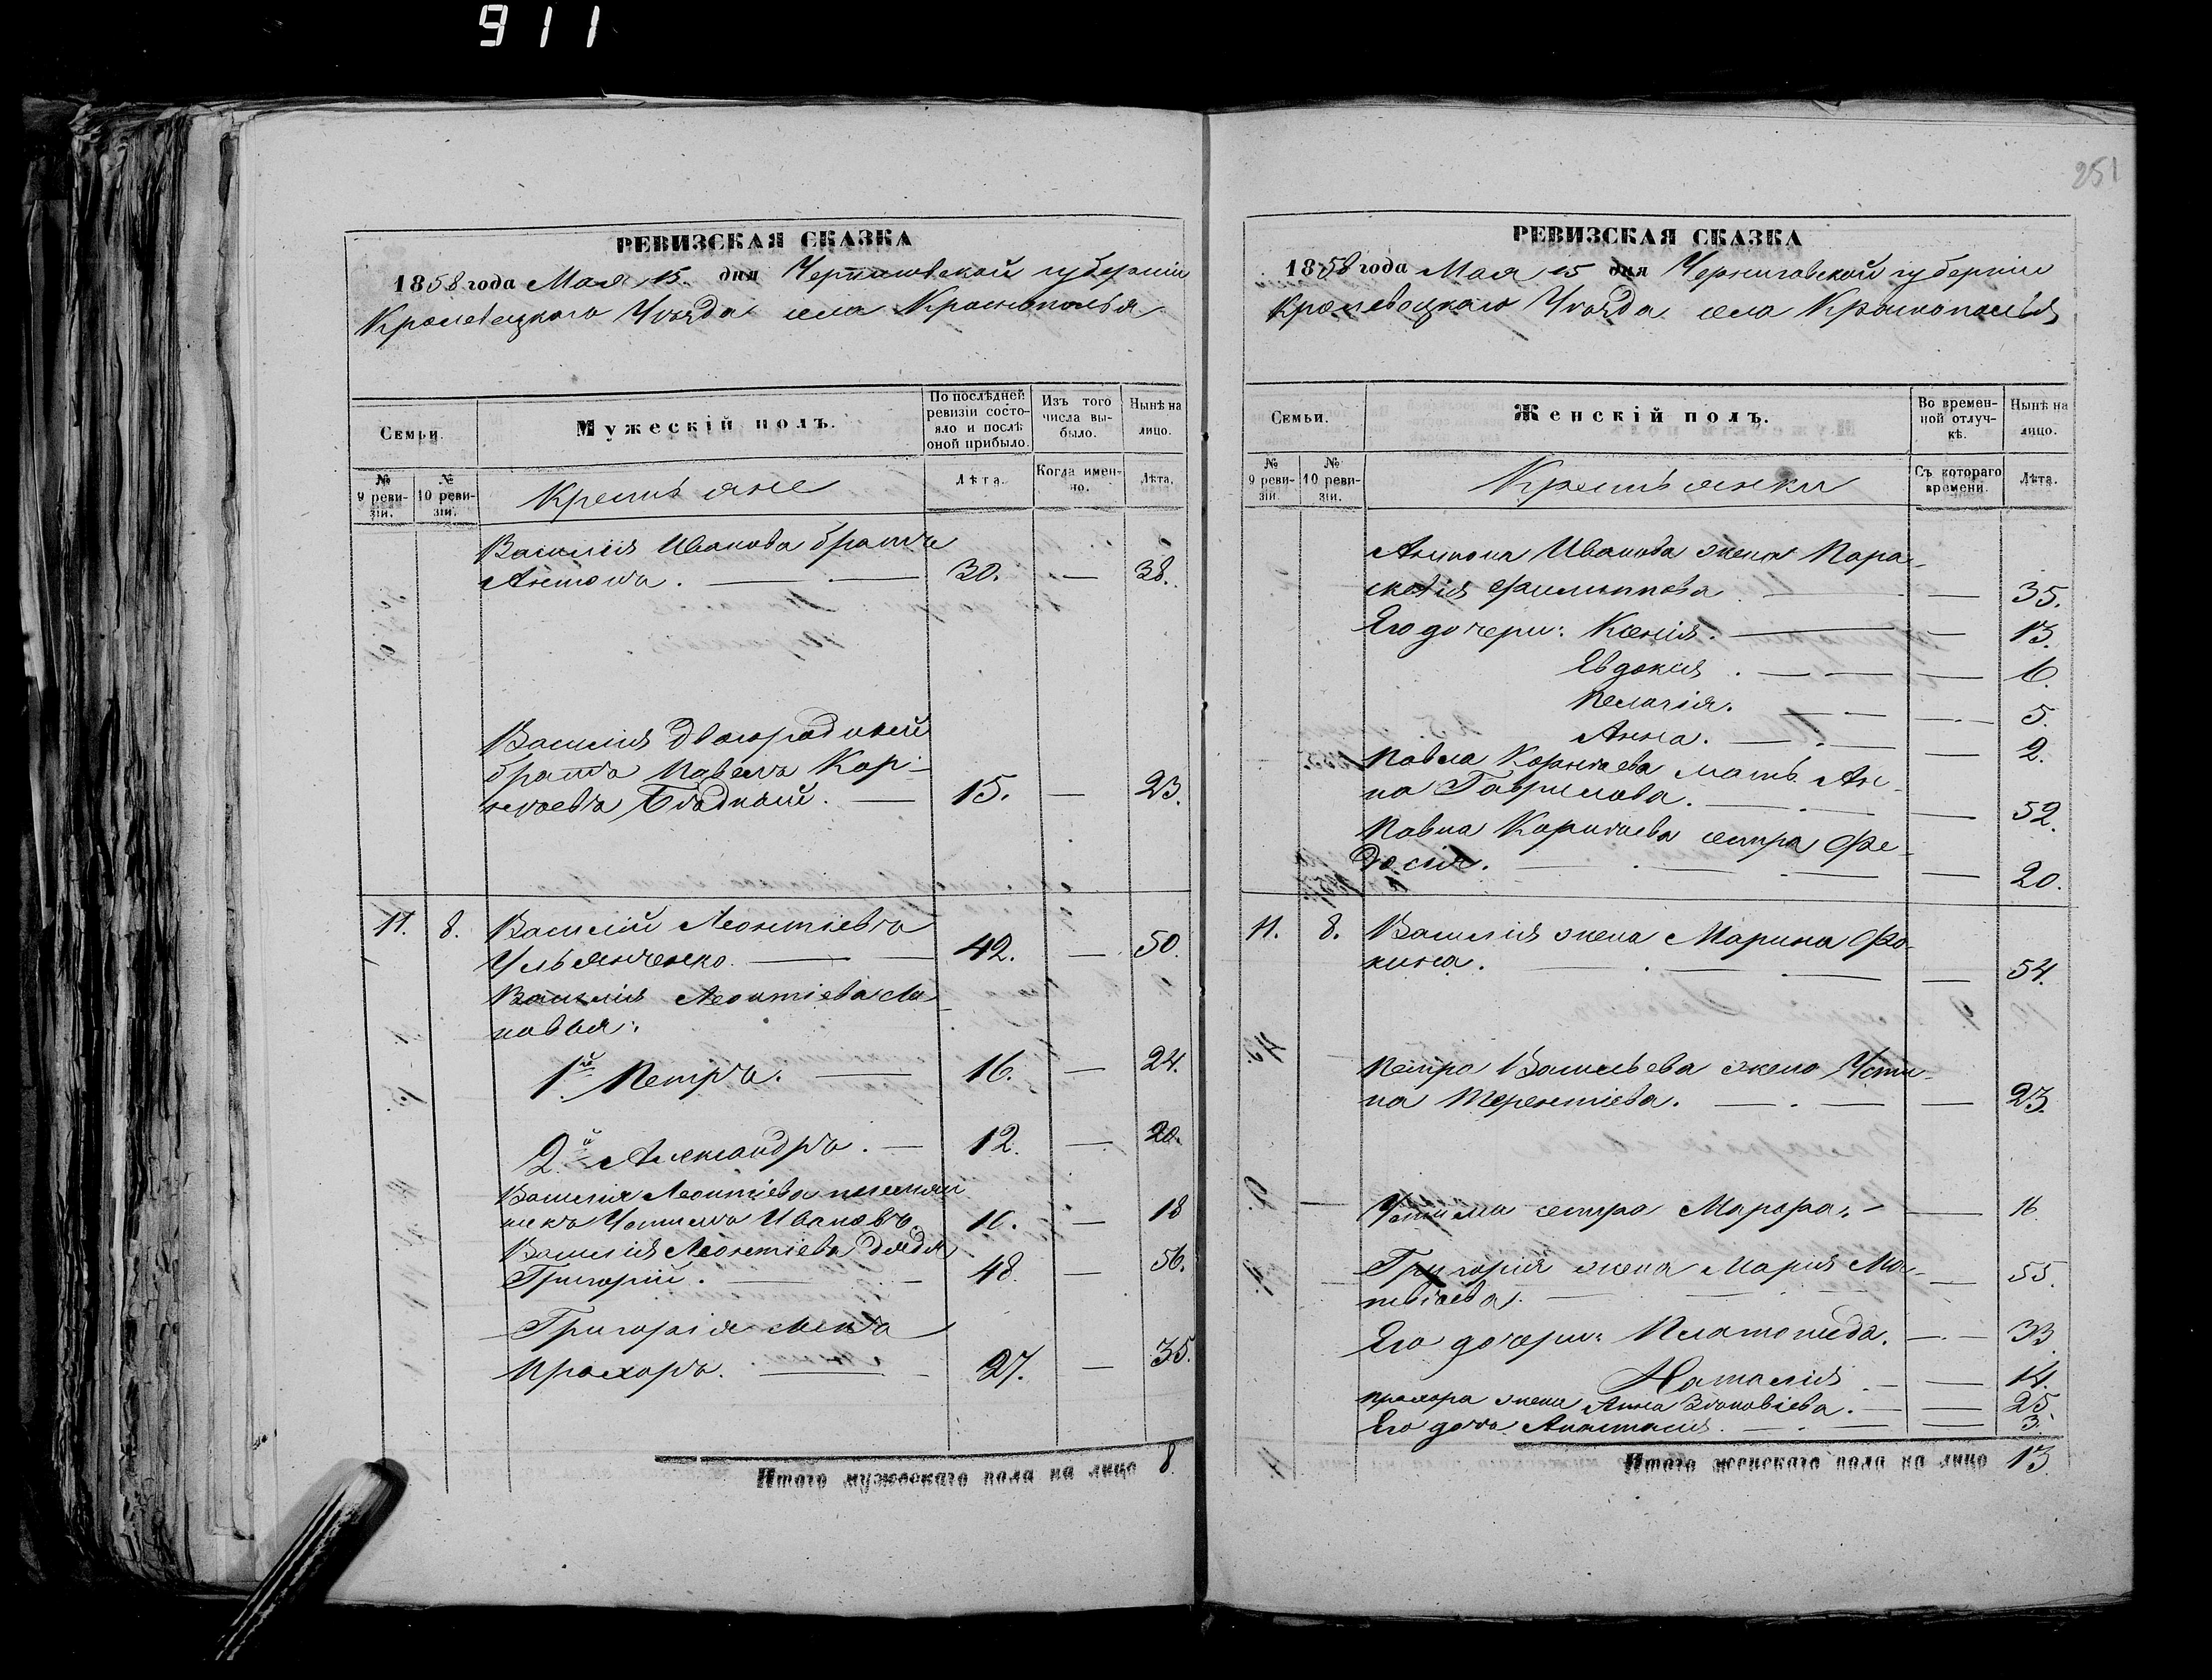 911
251
РЕВИЗСКАЯ СКАЗКА
1858 года Мая 15 дня Черниговской губерніи
Кролевецкаго Уѣзда села Краснополья
Семьи.
Мужескій полъ.
По послѣдней ревизіи состояло и послѣ оной прибыло.
Изъ того числа выбыло.
Нынѣ на лицо.
№ 9 ревизіи.
№ 10 ревизіи.
Крестьяне
Лѣта.
Когда именно.
Лѣта.
Василія Иванова братъ
Антонъ. 30. — 38.
Василія двоюродный
братъ Павелъ Кор-
нѣевъ Бѣдный. 15. — 23.
11. 8. Василій Леонтіевъ
Ульянченко. 42. — 50.
Василія Леонтіева сы-
новья:
1й Петръ. 16. — 24.
2й Александръ. 12. — 20.
Василія Леонтіева племян
никъ Устимъ Ивановъ. 10. — 18
Василія Леонтіева дядя
Григорій. 48. — 56.
Григорія сынъ
Прохоръ. 27. — 35.
Итого мужескаго пола на лицо 8.
РЕВИЗСКАЯ СКАЗКА
1858 года Мая 15 дня Черниговской губерніи
Кролевецкаго Уѣзда села Краснополья
Семьи.
Женскій полъ.
Во временной отлучкѣ.
Нынѣ на лицо.
№ 9 ревизіи.
№ 10 ревизіи.
Крестьянки
Съ котораго времени.
Лѣта.
Антона Иванова жена Пара-
скевія Филиппова — 35.
Его дочери: Ксенія. — 13.
Евдокія. —
Пелагія. — 5.
Анна. — 2.
Павла Корнѣева мать Ан-
на Гаврилова. — 52.
Павла Корнѣева сестра Фе-
досія. — 20.
11. 8. Василія жена Марина Фо-
кина. — 54.
Петра Васильева жена Усти-
на Терентіева. — 23.
Устима сестра — 16.
Григорія жена Марія Ма-
твѣева. — 55.
Его дочери: — 33
Наталія — 14.
Прохора жена Анна — 25
Его дочь Анастасія. — 3.
Итого женскаго пола на лицо 13